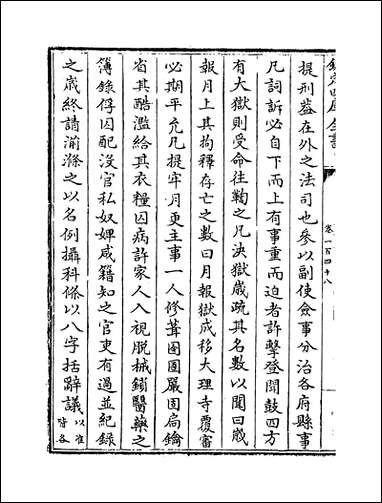 欽定四庫全書
卷一百四十八
提刑葢在外之法司也參以副使僉事分治各府縣事
凡詞訴必自下而上有事重而迫者許擊登聞鼓四方
有大獄則受命往鞫之凡決獄歲疏其名數以聞曰歲
報月上其拘釋存亡之數曰月報獄成移大理寺覆審
必期平允凡提牢月更主事一人修葺囹圄嚴固扄鑰
省其酷濫給其衣糧囚病許家人入視脱械鎖醫藥之
簿錄俘囚配沒官私奴婢咸籍知之官吏有過並紀錄
之歲終請湔滌之以名例攝科條以八字括辭議以准皆各